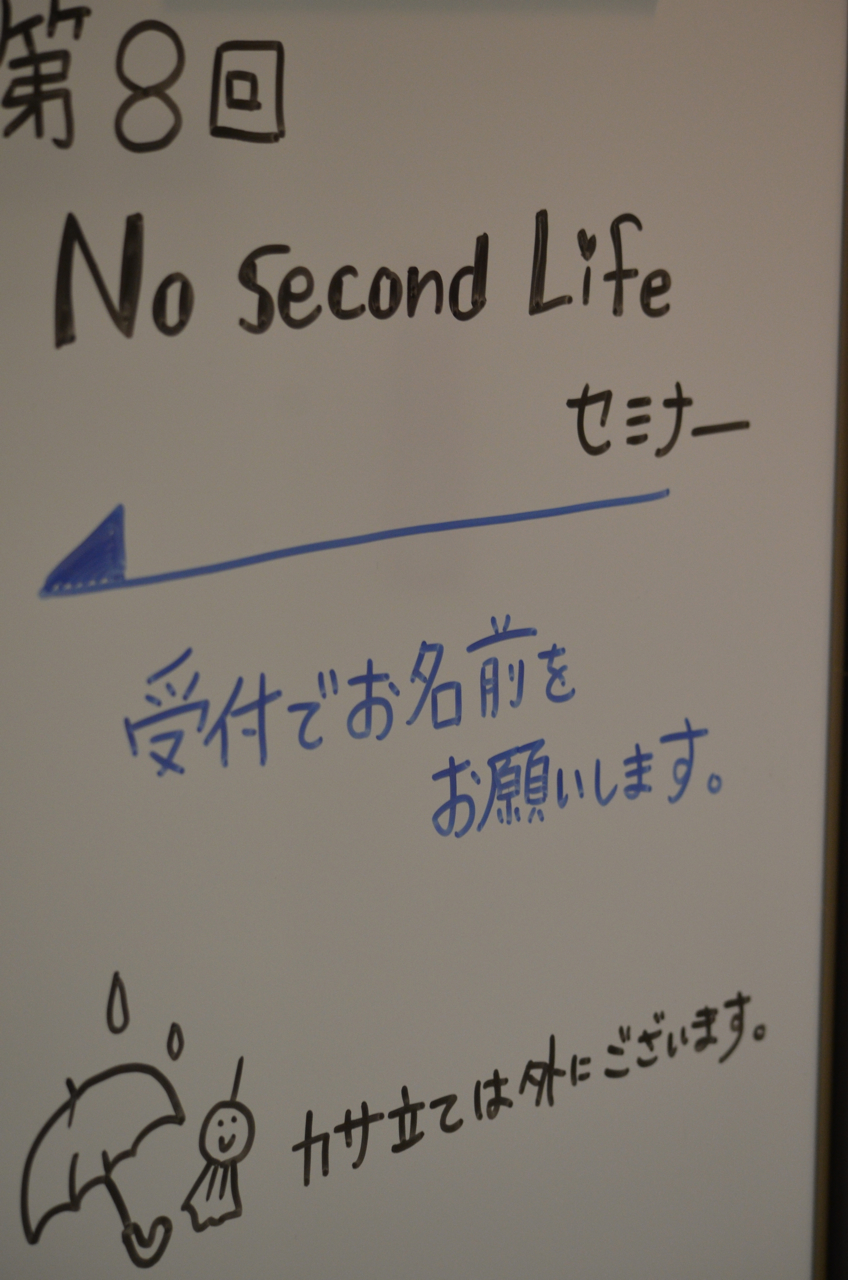 第8回
No Second Life
セミナー
受付でお名前を
お願いします。
カサ立ては外にございます。